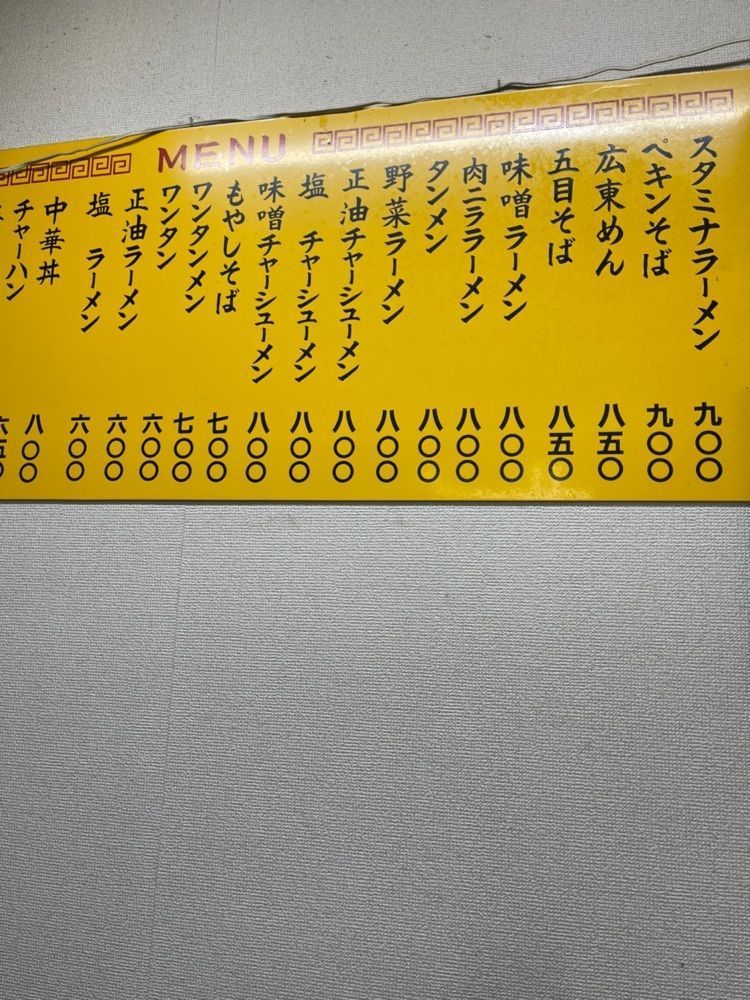 MENU
スタミナラーメン 九〇〇
ペキンそば 九〇〇
広東めん 八五〇
五目そば 八五〇
味噌ラーメン 八〇〇
肉ニララーメン 八〇〇
タンメン 八〇〇
野菜ラーメン 八〇〇
正油チャーシューメン 八〇〇
塩 チャーシューメン 八〇〇
味噌チャーシューメン 八〇〇
もやしそば 七〇〇
ワンタンメン 七〇〇
ワンタン 六〇〇
正油ラーメン 六〇〇
塩 ラーメン 六〇〇
中華丼 八〇〇
チャーハン 六五〇